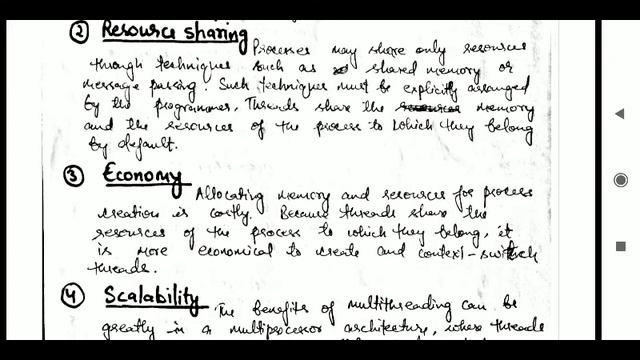 ② Resource sharing
Processes may share only resources
through techniques such as shared memory or
message passing. Such techniques must be explicitly arranged
by the programmer. Threads share the memory
and the resources of the process to which they belong
by default.
③ Economy
Allocating memory and resources for process
creation is costly. Because threads share the
resources of the process to which they belong, it
is more economical to create and context-switch
threads.
④ Scalability
The benefits of multithreading can be
greatly in a multiprocessor architecture, where threads